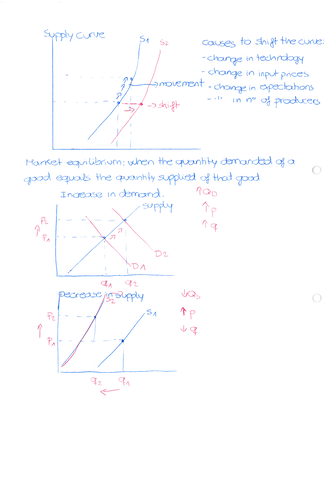 Supply curve
S1 S2
causes to shift the curve:
- change in technology
- change in input prices
- change in expectations
- " in nº of producers
movement
shift
Market equilibrium: when the quantity demanded of a
good equals the quantity supplied of that good
Increase in demand.
supply
P2
↑
P1
D2
D1
q1 q2
↑QD
↑P
↑q
Decrease in supply
S2
S1
P2
↑
P1
q2 q1
←
↓Qs
↑P
↓q